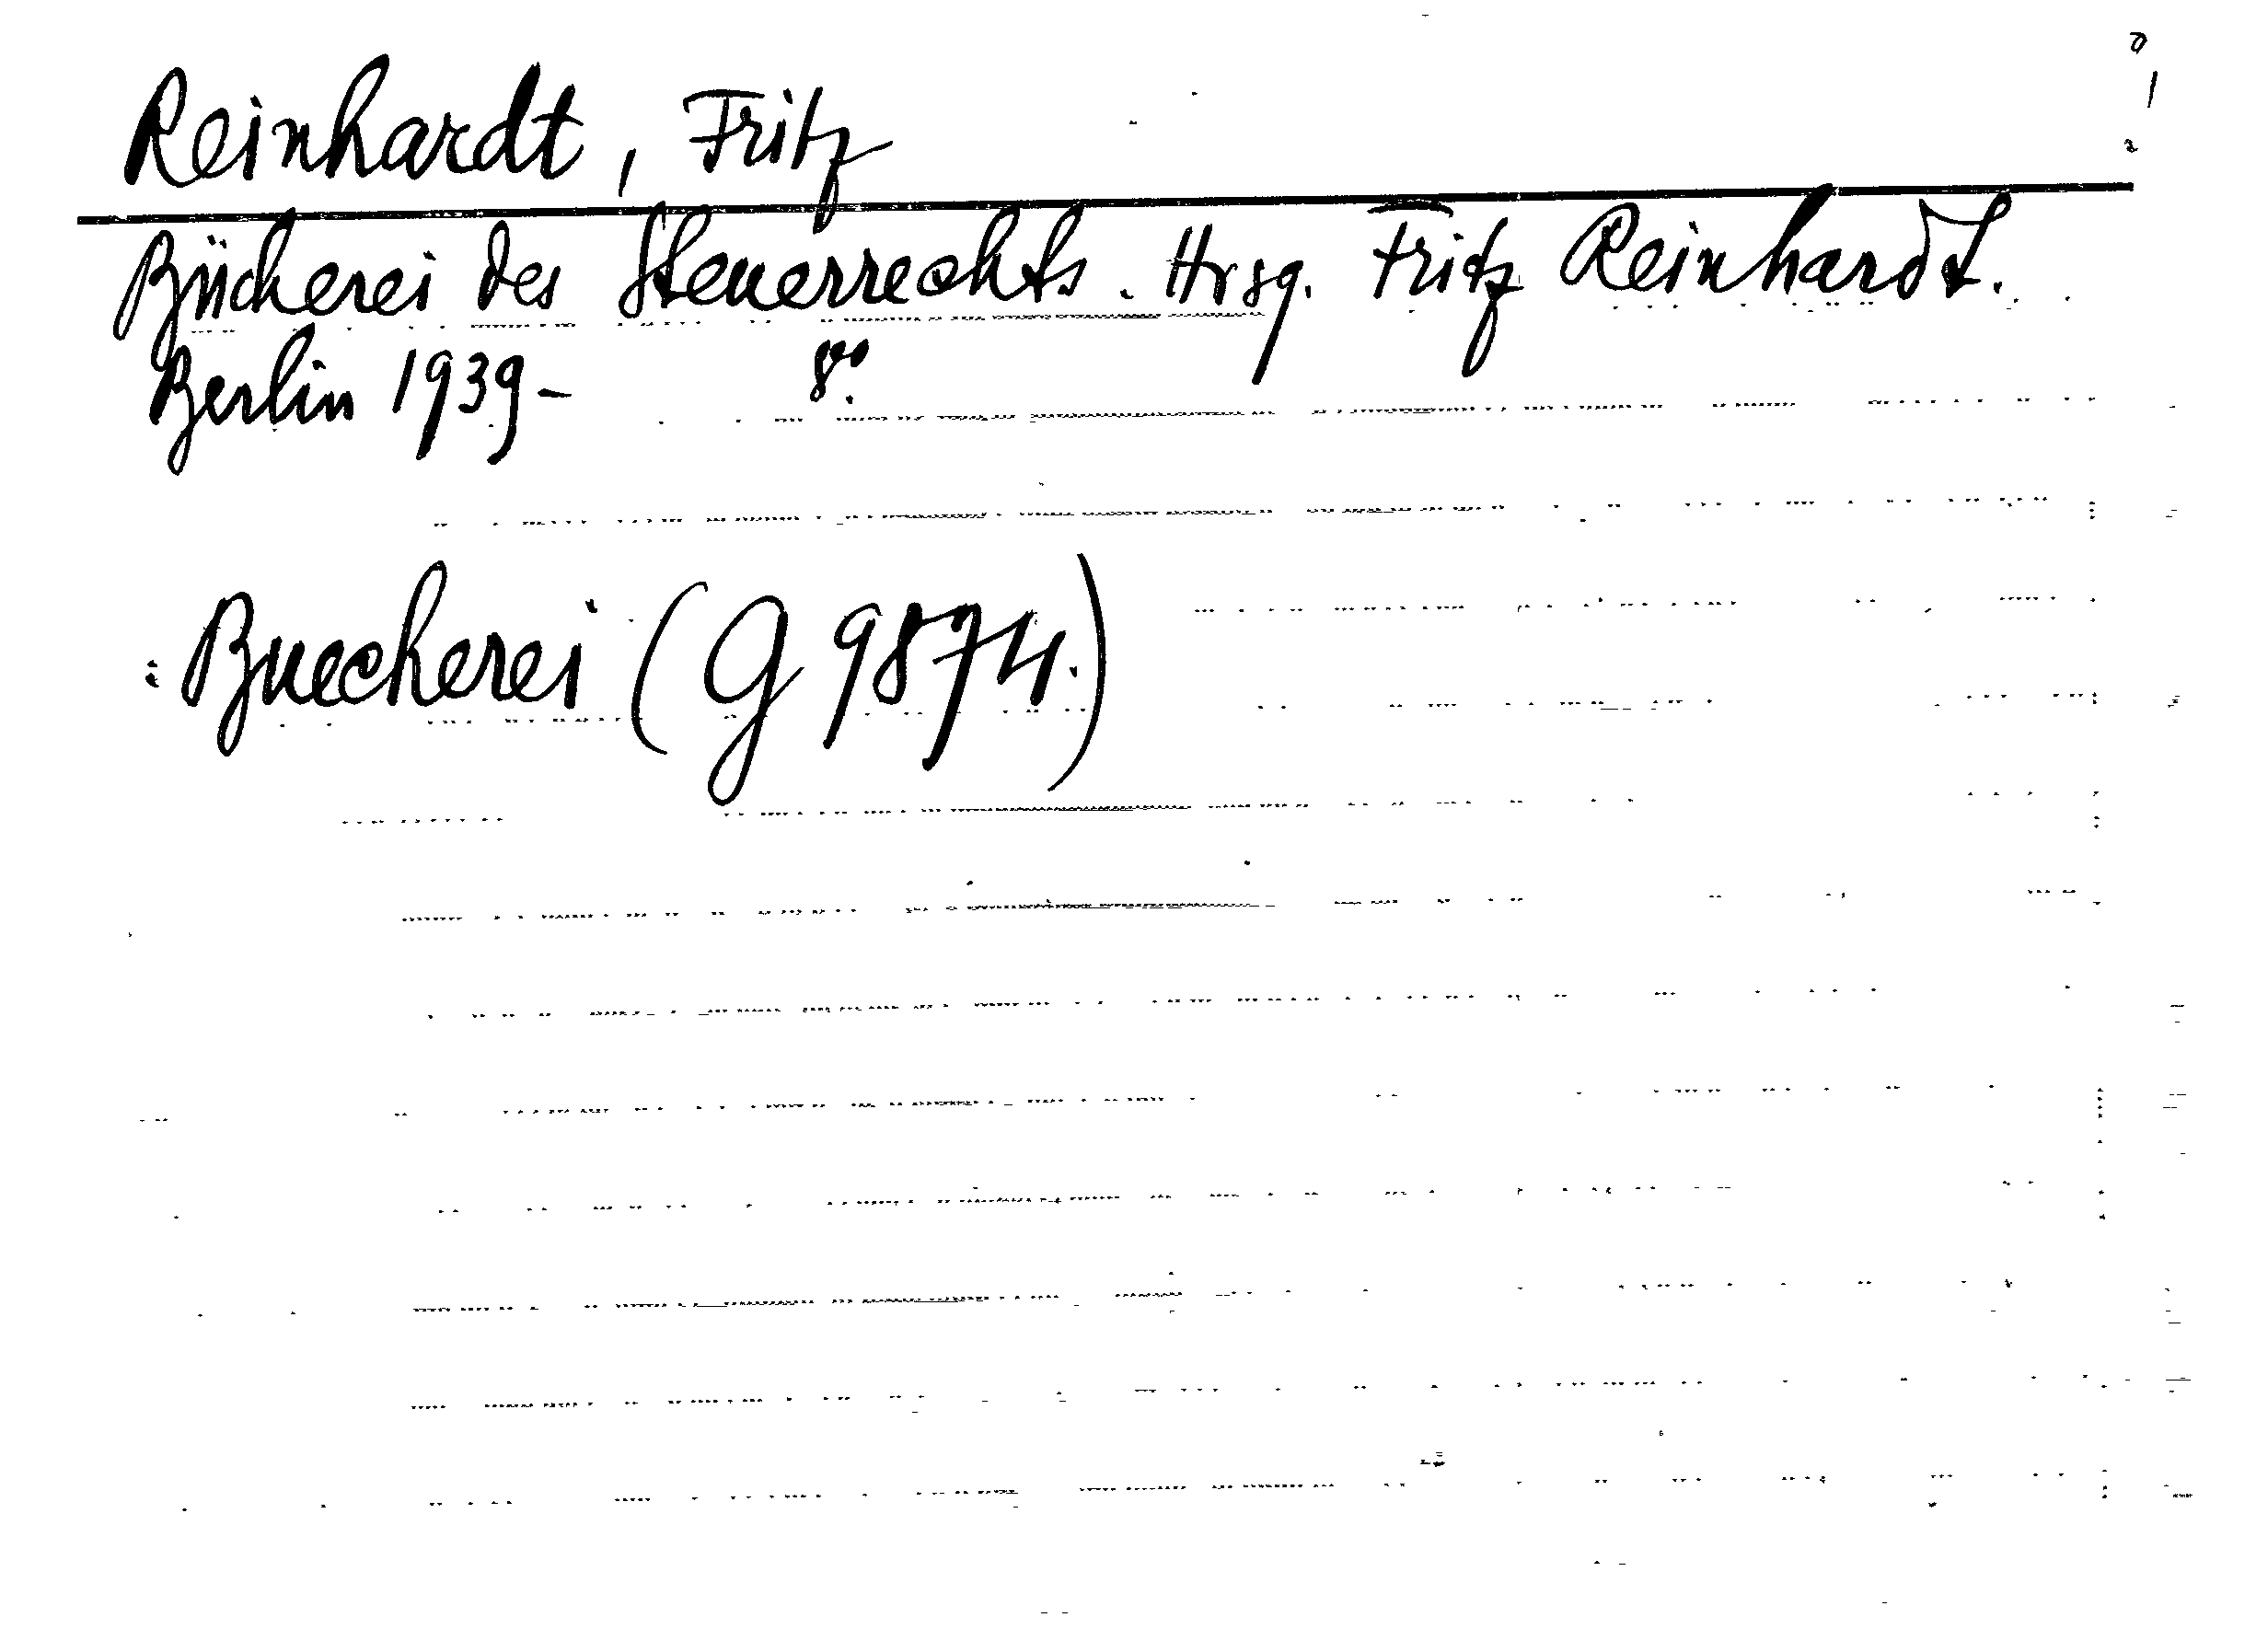 Reinhardt, Fritz
Bücherei des Steuerrechts. Hrsg. Fritz Reinhardt.
Berlin 1939- 8vo.
: Buecherei (G 9874.)